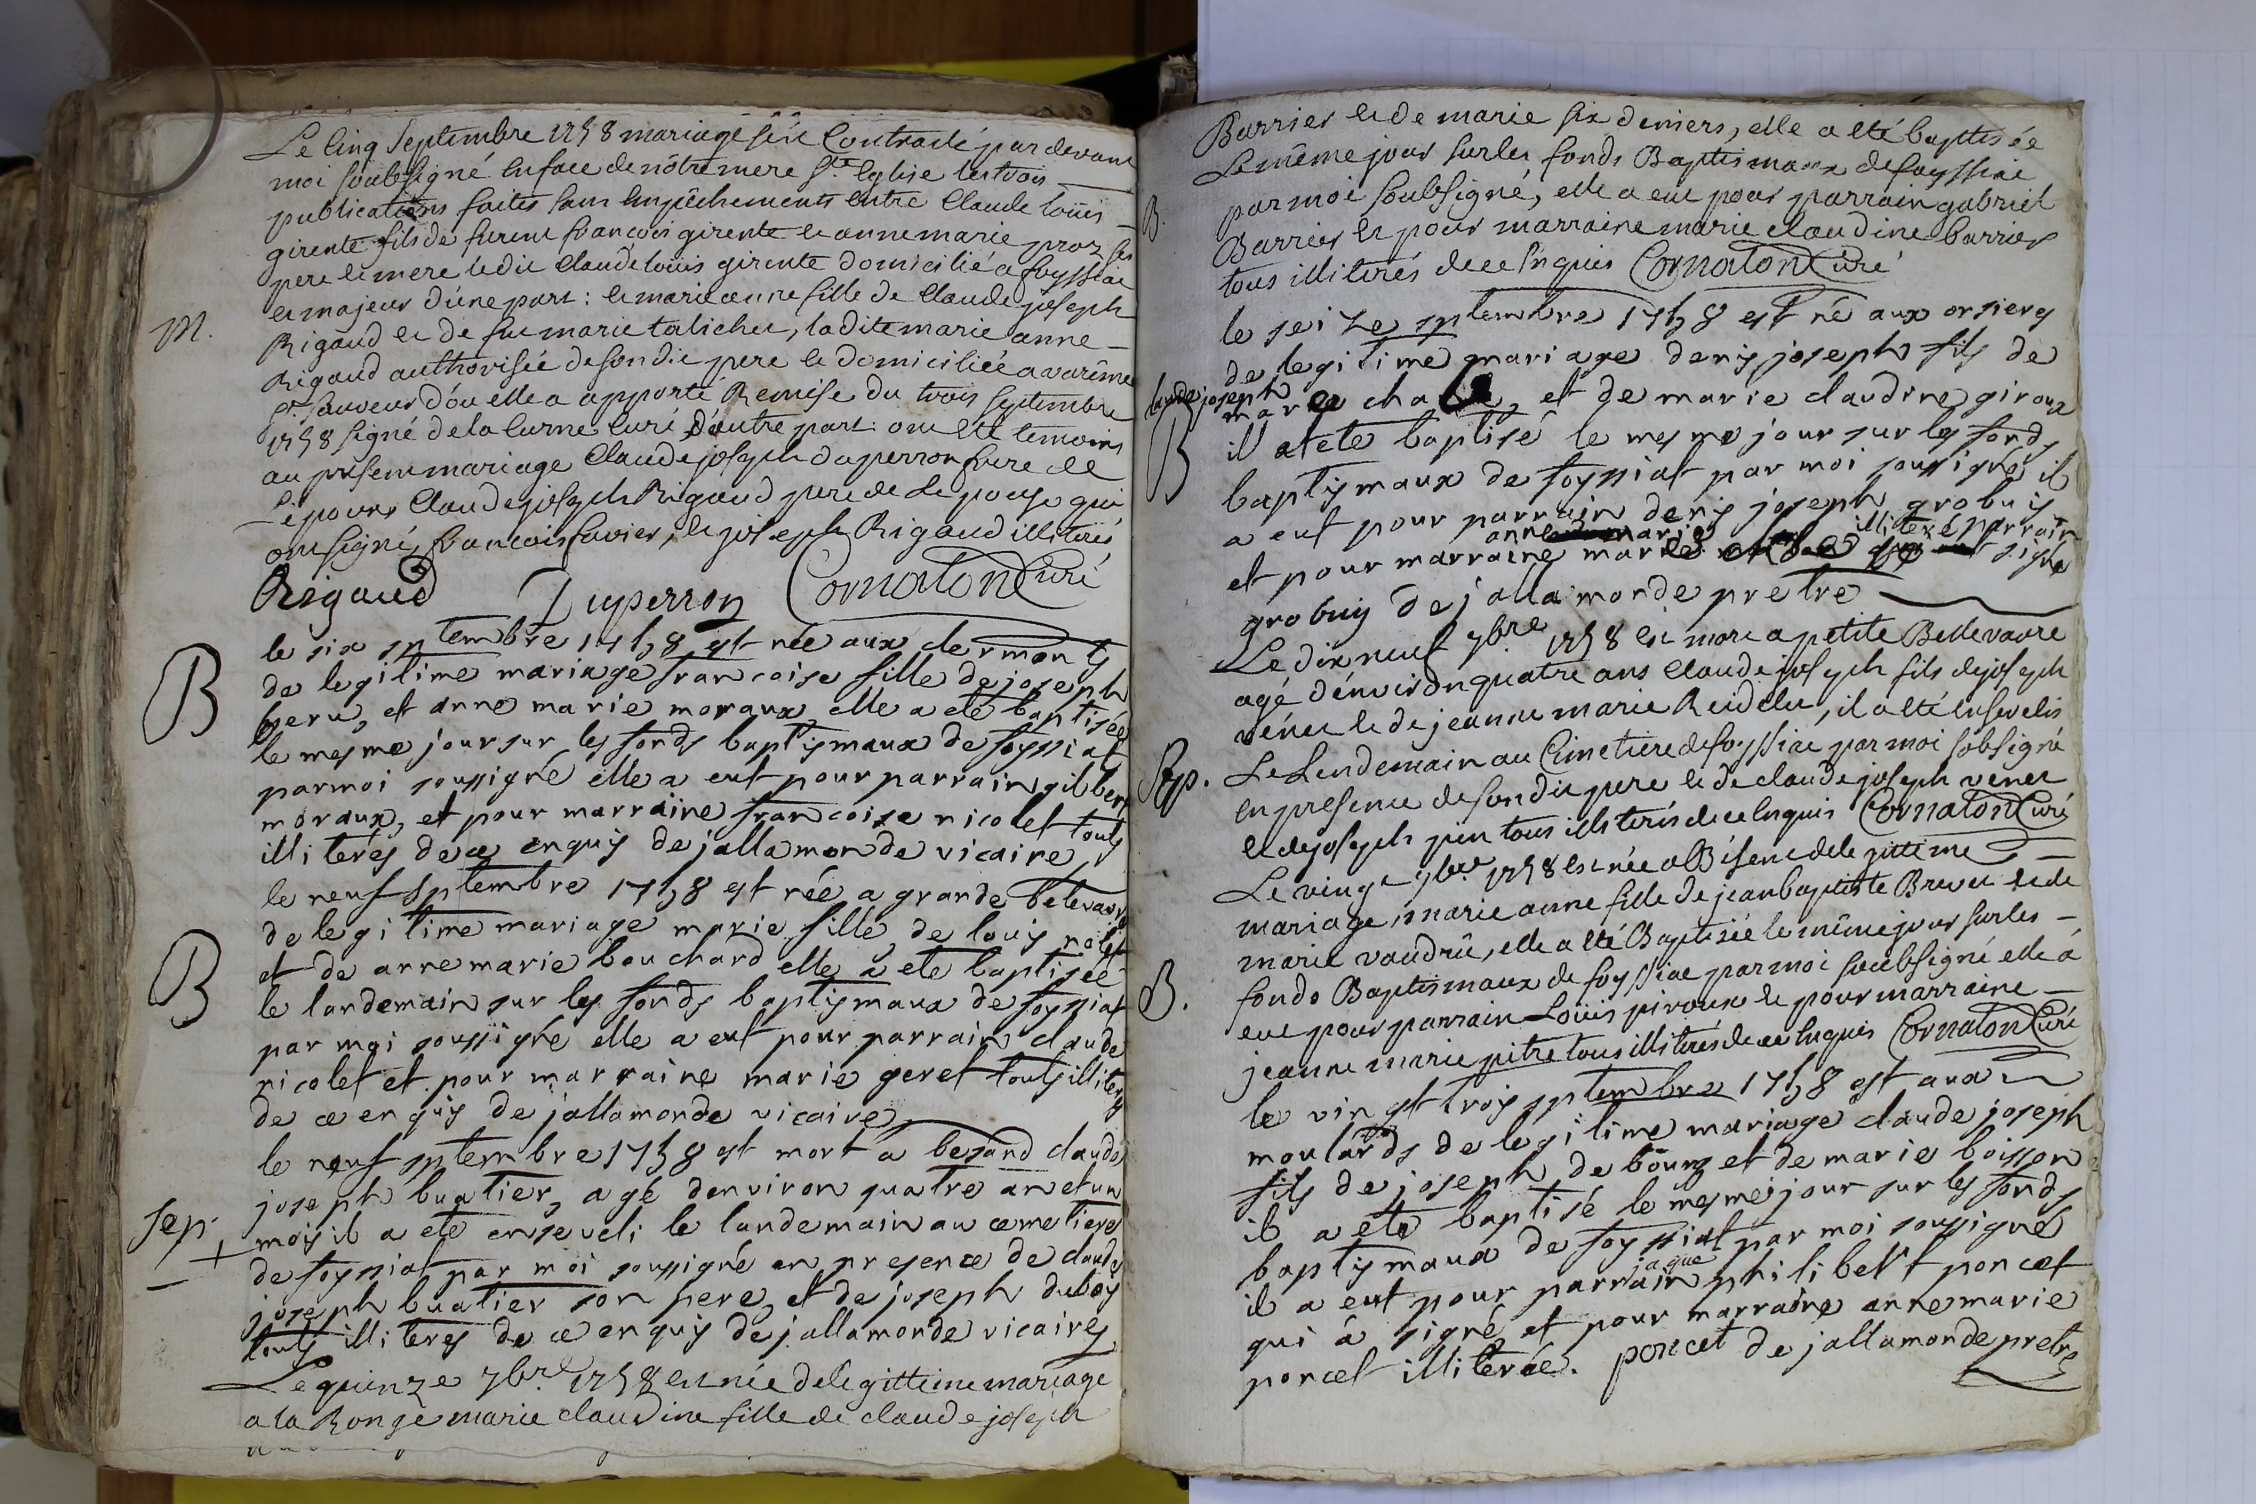 Le Cinq Septembre 1758 mariage s'est Contracté par devant
moi soubsigné en face de nôtre mere Ste Eglise les trois
publications faites sans empêchements entre Claude loüis
girente fils de furent francois girente et anne marie proz ses
pere et mere ledit Claude loüis girente domicilié a foyssiac
et majeur d'une part : et marie anne fille de Claude joseph
M.
Rigaud et de fue marie talichet, ladite marie anne
Rigaud authorisée de son dit pere et domiciliée a varenne
St. sauveur d'ou elle a apporté Remise du trois Septembre
1758 signé de la Curne Curé d'autre part : ont été temoins
au present mariage Claude joseph duperron frere de
l'epoux Claude joseph Rigaud pere de l'epouse qui
ont signé, francois favier, et joseph Rigaud illiterés
Rigaud Duperron Cornaton Curé
le six septembre 1758 est née aux clermonts
B
de legitime mariage francoise fille de joseph
et anne marie moraux elle a eté baptisée
le mesme jour sur les fonds baptismaux de foyssiat
par moi soussigné elle a eut pour parrain gilbert
moraux, et pour marraine francoise nicolet touts
illiterés de ce enquis de jallamonde vicaire
le neuf septembre 1758 est née a grande belevavre
de legitime mariage marie fille de louis
B
et de anne marie bouchard elle a eté baptisée
le landemain sur les fonds baptismaux de foyssiat
par moi soussigné elle a eut pour parrain claude
nicolet et pour marraine marie geret touts illiterés
de ce enquis de jallamonde vicaire
le neuf septembre 1758 est mort a besand claude
joseph buatier, agé denviron quatre an et un
Sep.
mois il a eté enseveli le landemain au cemetiere
de foyssiat par moi soussigné en presence de claude
joseph buatier son pere, et de joseph dubois
touts illiterés de ce enquis de jallamonde vicaire
Le quinze 7bre 1758 est née de legittime mariage
a la Ronze marie claudine fille de claude joseph
Barrier et de marie six deniers, elle a été baptisée
Le même jour sur les fonds Baptismaux de foyssiac
B.
par moi soubsigné, elle a eut pour parrain gabriel
Barrier et pour marraine marie claudine barrier
tous illiterés de ce enquis Cornaton Curé
le seize septembre 1758 est né aux orsieres
de legitime mariage denis joseph fils de
claude joseph
et de marie claudine giroux
B
il a eté baptisé le mesme jour sur les fonds
baptismaux de foyssiat par moi soussigné, il
a eut pour parrain denis joseph grobuis
anne marie illiteré parrain
et pour marraine signé
grobuis de jallamonde prêtre
Le dix neuf 7bre 1758 est mort a petite Bellevavre
agé d'environ quatre ans Claude joseph fils de joseph
venet et de jeanne marie Reidelet, il a été ensevelis
Sep.
Le Lendemain au Cimetiere de foyssiac par moi sobsigné
en presence de son dit pere et de claude joseph venet
et de joseph tous illiterés de ce enquis Cornaton Curé
Le vingt 7bre 1758 est née a Bésent de legittime
mariage, marie anne fille de jean baptiste Brevet et de
marie vaudrü, elle a été Baptisée le même jour sur les
B.
fonds Baptismaux de foyssiac par moi soubsigné elle a
eut pour parrain Loüis piroux et pour marraine
jeanne marie pitre tous illiterés de ce enquis Cornaton Curé
le vingt trois septembre 1758 est aux
moulards de legitime mariage claude joseph
fils de joseph de bourg et de marie boisson
il a eté baptisé le mesme jour sur les fonds
baptismaux de foyssiat par moi soussigné
jaque
il a eut pour parrain philibert poncet
qui a signé, et pour marraine anne marie
poncet illiterée. poncet de jallamonde pretre